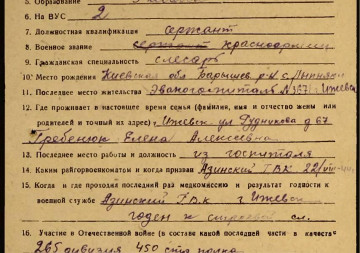 5. Образование
6. На ВУС 2
7. Должностная квалификация сержант
8. Военное звание сержант красноармеец
9. Гражданская специальность слесарь
10. Место рождения Киевская обл Барышев. р-н с.
11. Последнее место жительства Эвакогоспиталь Ижевск
12. Где проживает и настоящее время семья (фамилия, имя и отчество жены или
родителей и точный их адрес) г. Ижевск ул Дудникова д 67
Гребенюк Елена Алексеевна
13. Последнее место работы и должность из госпиталя
14. Каким райгорвоенкоматом и когда призван Азинский Г.В.К. 22/
15. Когда и где проходил последний раз медкомиссию и результат годности к
военной службе Азинский Г.В.К г. Ижевск
годен к строевой сл.
16. Участие в Отечественной войне (в составе какой последней части в качеств
265 дивизия 450 стр полка